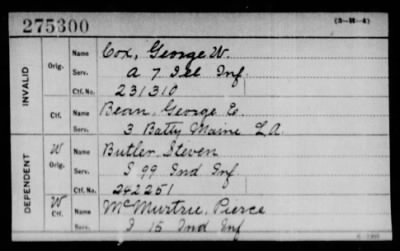 275300 (3-H-4)
INVALID
Orig. Name Cox, George W.
Serv. A 7 Ill Inf.
Ctf. No. 231310
Ctf. Name Bean, George E.
Serv. 3 Batty Maine L.A.
DEPENDENT
W Orig. Name Butler Steven
Serv. I 99 Ind Inf.
Ctf. No. 242251
W Ctf. Name McMurtrie, Pierce
Serv. I 15 Ind Inf